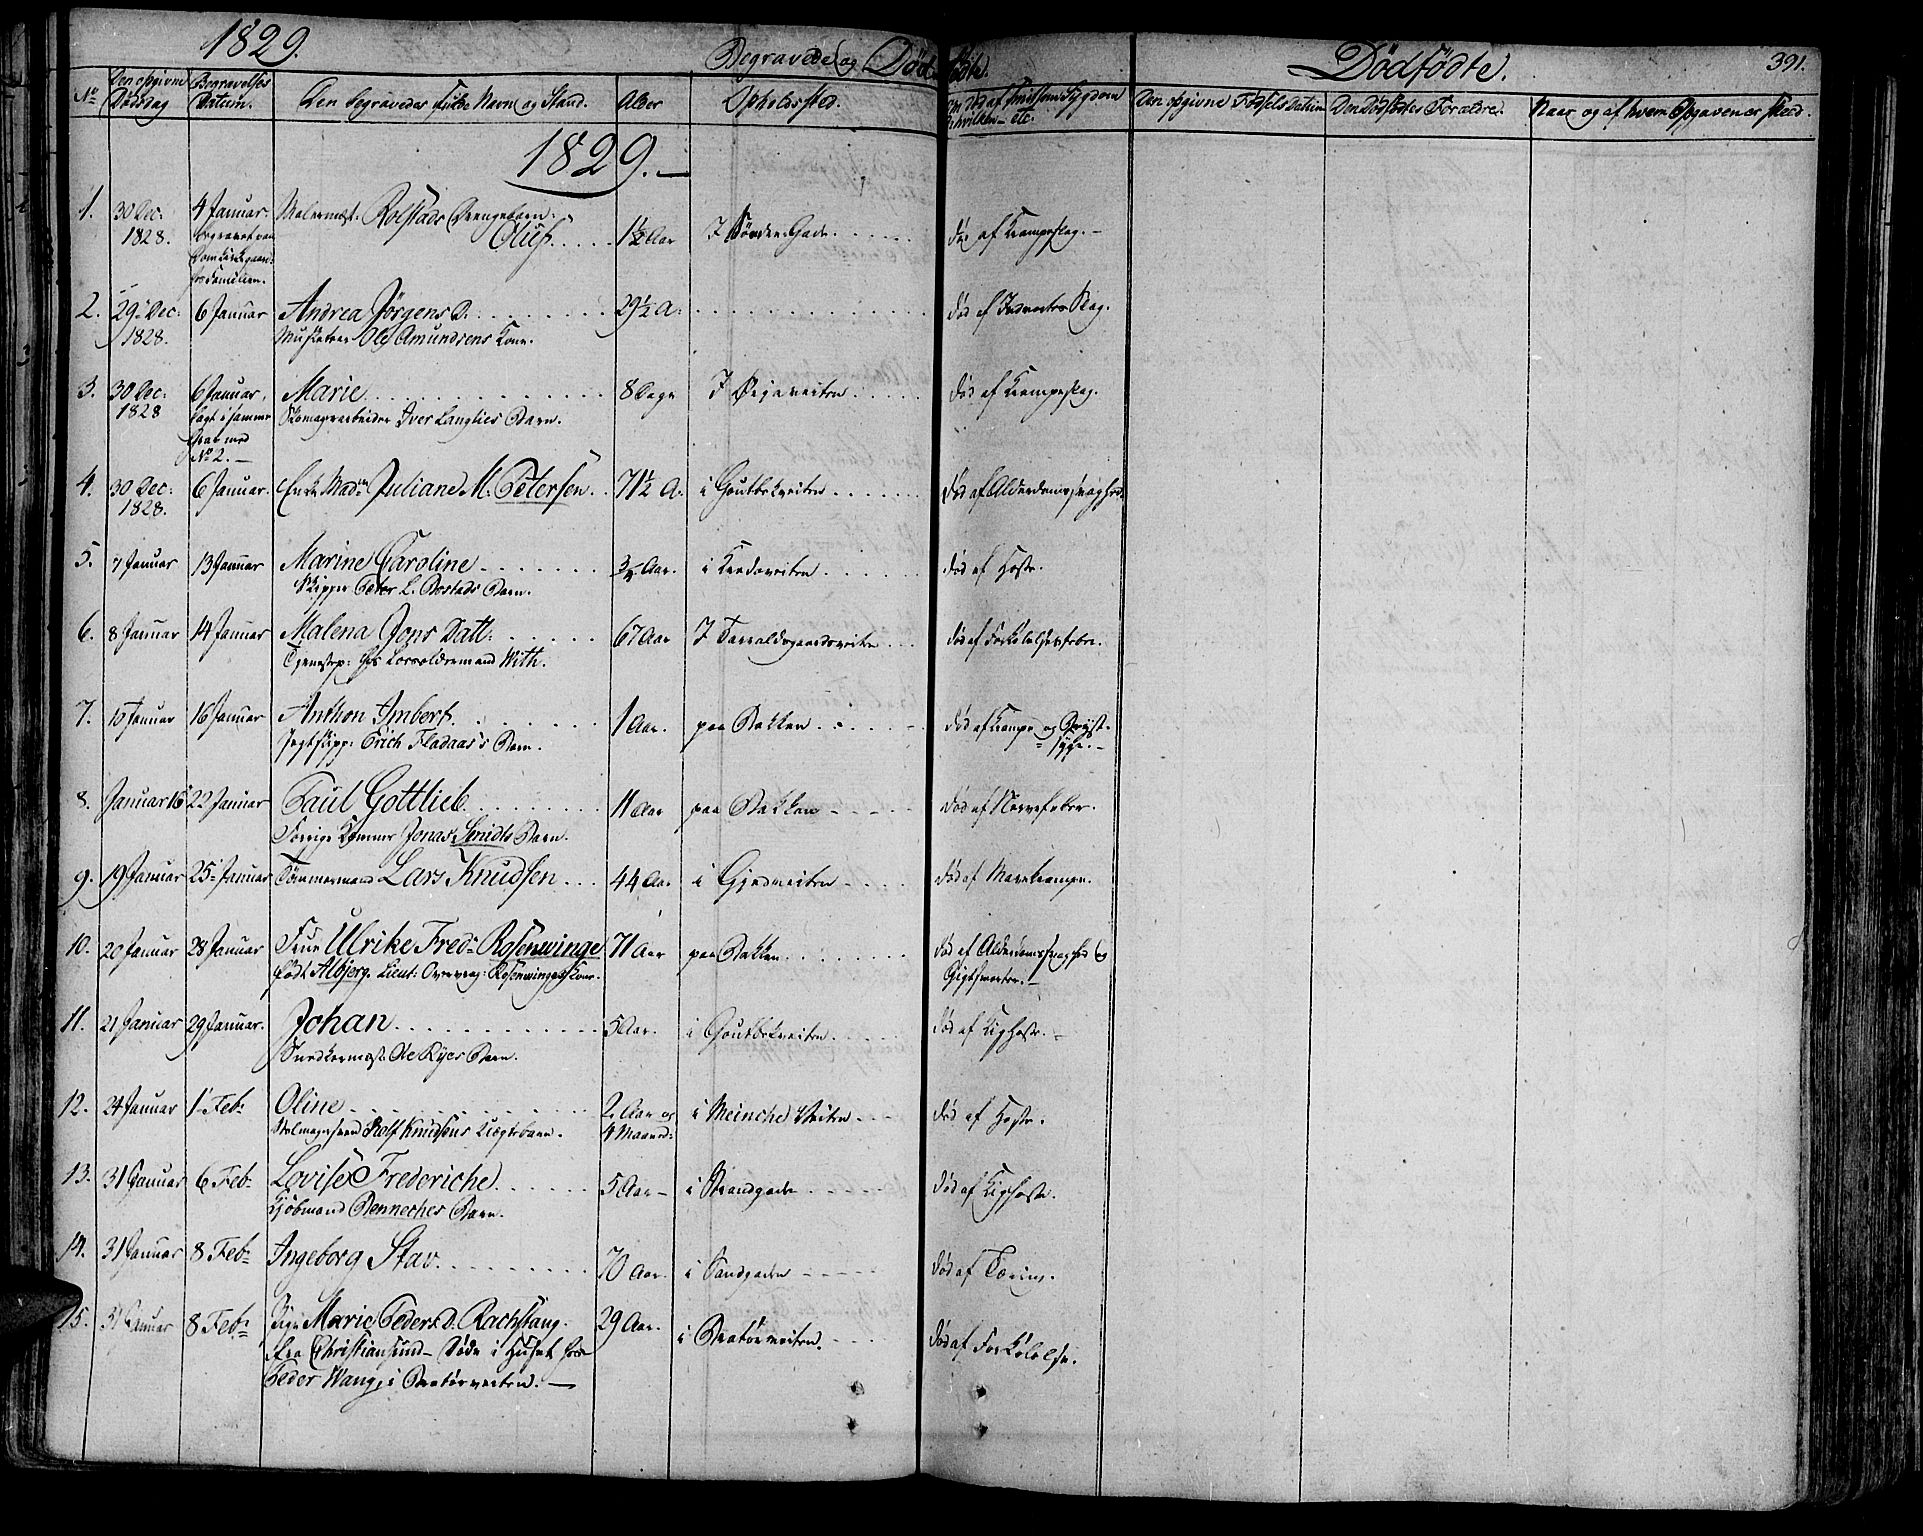 1829.
Begravede og Dødfødte.
Dødfødte.
391.
No
Den opgivne Dødsdag
Begravelses Datum.
Den begravedes fulde Navn og Stand.
Alder
Opholdssted.
Den opgivne Fødsels Datum
Den Dødfødtes Forældre.
Naar og af hvem Opgaven er skeed.
1829.
1. 30 Dec: 1828. 4 Januar. begravet paa Domkirkegaard: Malermest: Rolstads Drengebarn: Oluf..... 1½ Aar I Søndre Gade...... død af Krampeslag.
2. 29 Dec: 1828. 6 Januar Andrea Jörgens D. ........ 29½ A: død af Indvortes Slag.
Musketeer Ole Amundsens Kone.
3. 30 Dec: 1828 6 Januar, lagt i samme Grav med No 2. Marie............... 8 Dage I Örjaveiten..... død af Krampeslag.
Skomagerarbeider Iver Langlies Barn.
4. 30 Dec: 1828. 6 Januar. Enke Madm Juliane M. Petersen.. 71½ A. i Goutbekveiten...... død af Alderdomssvaghed.
5. 7 Januar 13 Januar Marine Caroline....... ¾ Aar. i Krodoveiten...... død af Hoste.
Skipper Peter L. Bostads Barn.
6. 8 Januar 14 Januar Malena Jons Datt:...... 67 Aar I Tarraldsgaardsveiten... død af Forkølelsesfeber.
Tjenestep: hos Worroldermand With.
7. 10 Januar 16 Januar Anthon Imbert....... 1 Aar. paa Bakken....... død af Krampe og Bryst-
syge.
Jagtskipp: Erich Fladaas's Barn.
8. Januar 16 22 Januar Paul Gottlieb........ 11 Aar paa Bakken død af Nervefeber.
Jonas Smidts Barn.
9. 19 Januar 25 Januar Tömmermand Lars Knudsen... 44 Aar. i Gjedveiten død af Mavekrampe.
10. 20 Januar 28 Januar Frue Ulrike Fred: Rosenwinge 71 Aar paa Bakken......... død af Alderdomssvaghed og
Gigtsmerter.
født Alberg. Lieut: Overvrag: Rosenwinges Kone.
11. 21 Januar 29 Januar. Johan............. 5 Aar. i Goutbekveiten...... død af Kighoste.
Snedkermest: Ole Ryes Barn.
12. 24 Januar 1 Feb: Oline............. 2 Aar og 4 Maaned: i Meincheveiten død af Hoste.
Rolf Knudsens Uægtebarn.
13. 31 Januar 6 Feb: Lovise Frederiche...... 5 Aar i Strandgade død af Kighoste.
Kjöbmand Benneches Barn.
14. 31 Januar 8 Feb: Ingeborg Stav......... 70 Aar. i Sandgaden død af Tæring.
15. 31 Januar 8 Feb: Pige Marie Peders D. Rachstang. 29 Aar. i Bratörveiten. død af Forkölelse.
fra Christiansund - Døde i Huset hos
Peder Wang, i Bratörveiten.